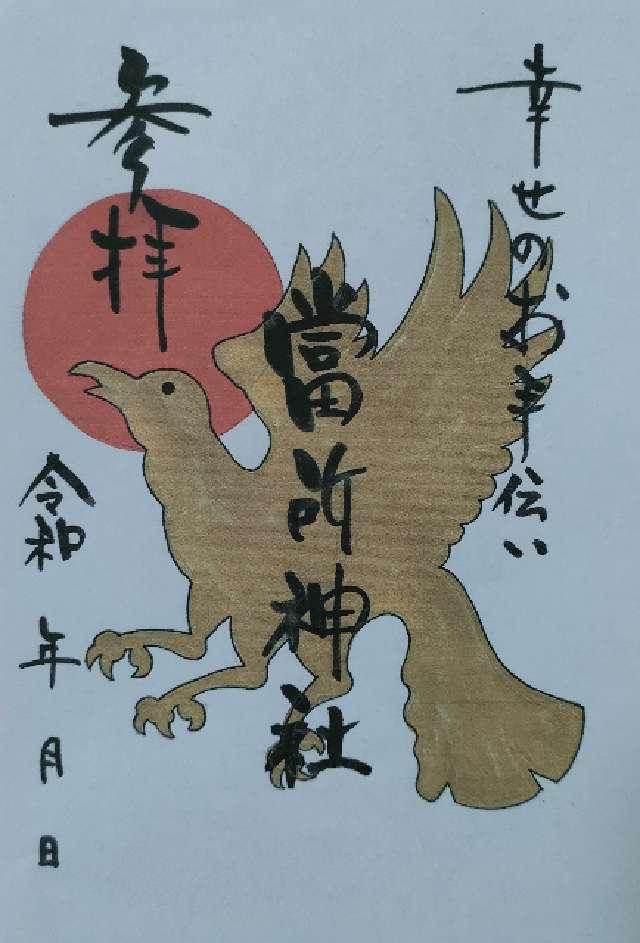 幸せのお手伝い
當所神社
参拝
令和 年 月 日